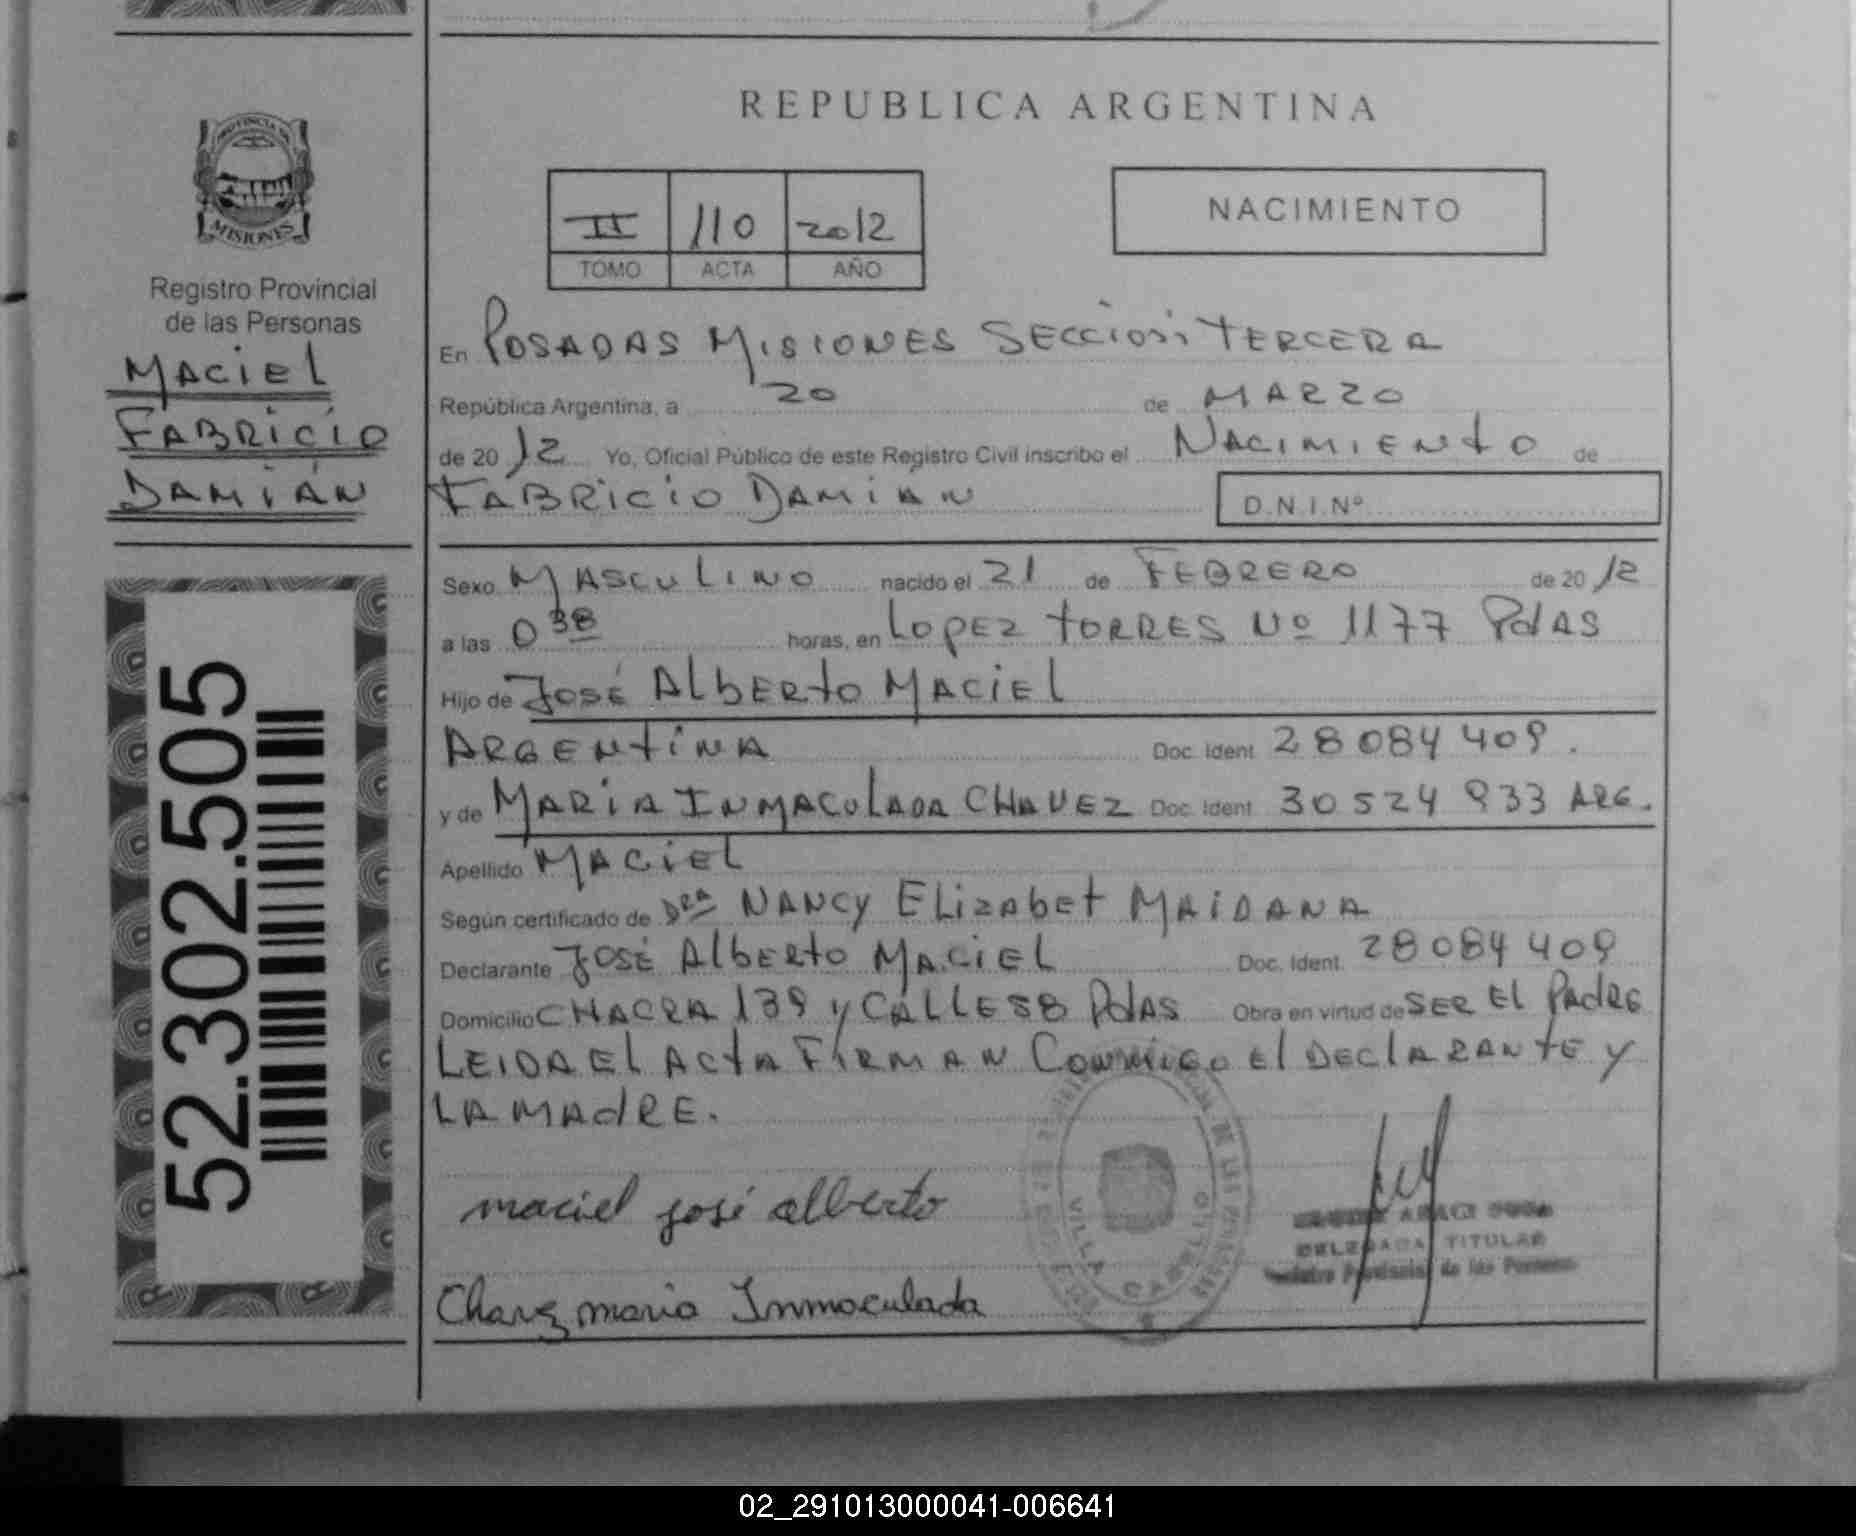 REPUBLICA ARGENTINA
PROVINCIA DE
MISIONES
Registro Provincial
de las Personas
MACIEL
FABRICIO
DAMIÁN
52.302.505
II 110 2012
TOMO ACTA AÑO
NACIMIENTO
En POSADAS MISIONES SECCIÓN TERCERA
República Argentina, a 20 de MARZO
de 2012 Yo, Oficial Público de este Registro Civil inscribo el NACIMIENTO de
FABRICIO DAMIÁN D.N.I.Nº
Sexo MASCULINO nacido el 21 de FEBRERO de 2012
a las 0 38 horas, en LOPEZ TORRES Nº 1177 PdAS
Hijo de JOSÉ ALBERTO MACIEL
ARGENTINA Doc. Ident. 28084409.
y de MARÍA INMACULADA CHAVEZ Doc. Ident. 30524933 ARG.
Apellido MACIEL
Según certificado de DRA NANCY ELIZABET MAIDANA
Declarante JOSÉ ALBERTO MACIEL Doc. Ident. 28084409
Domicilio CHACRA 139 y CALLE 58 PdAS Obra en virtud de SER EL PADRE
LEIDA EL ACTA FIRMAN CONMIGO EL DECLARANTE Y
LA MADRE.
maciel josé alberto
Chavez maria Inmaculada
VILLA CABELLO
DELEGADA TITULAR
Registro Provincial de las Personas
02_291013000041-006641